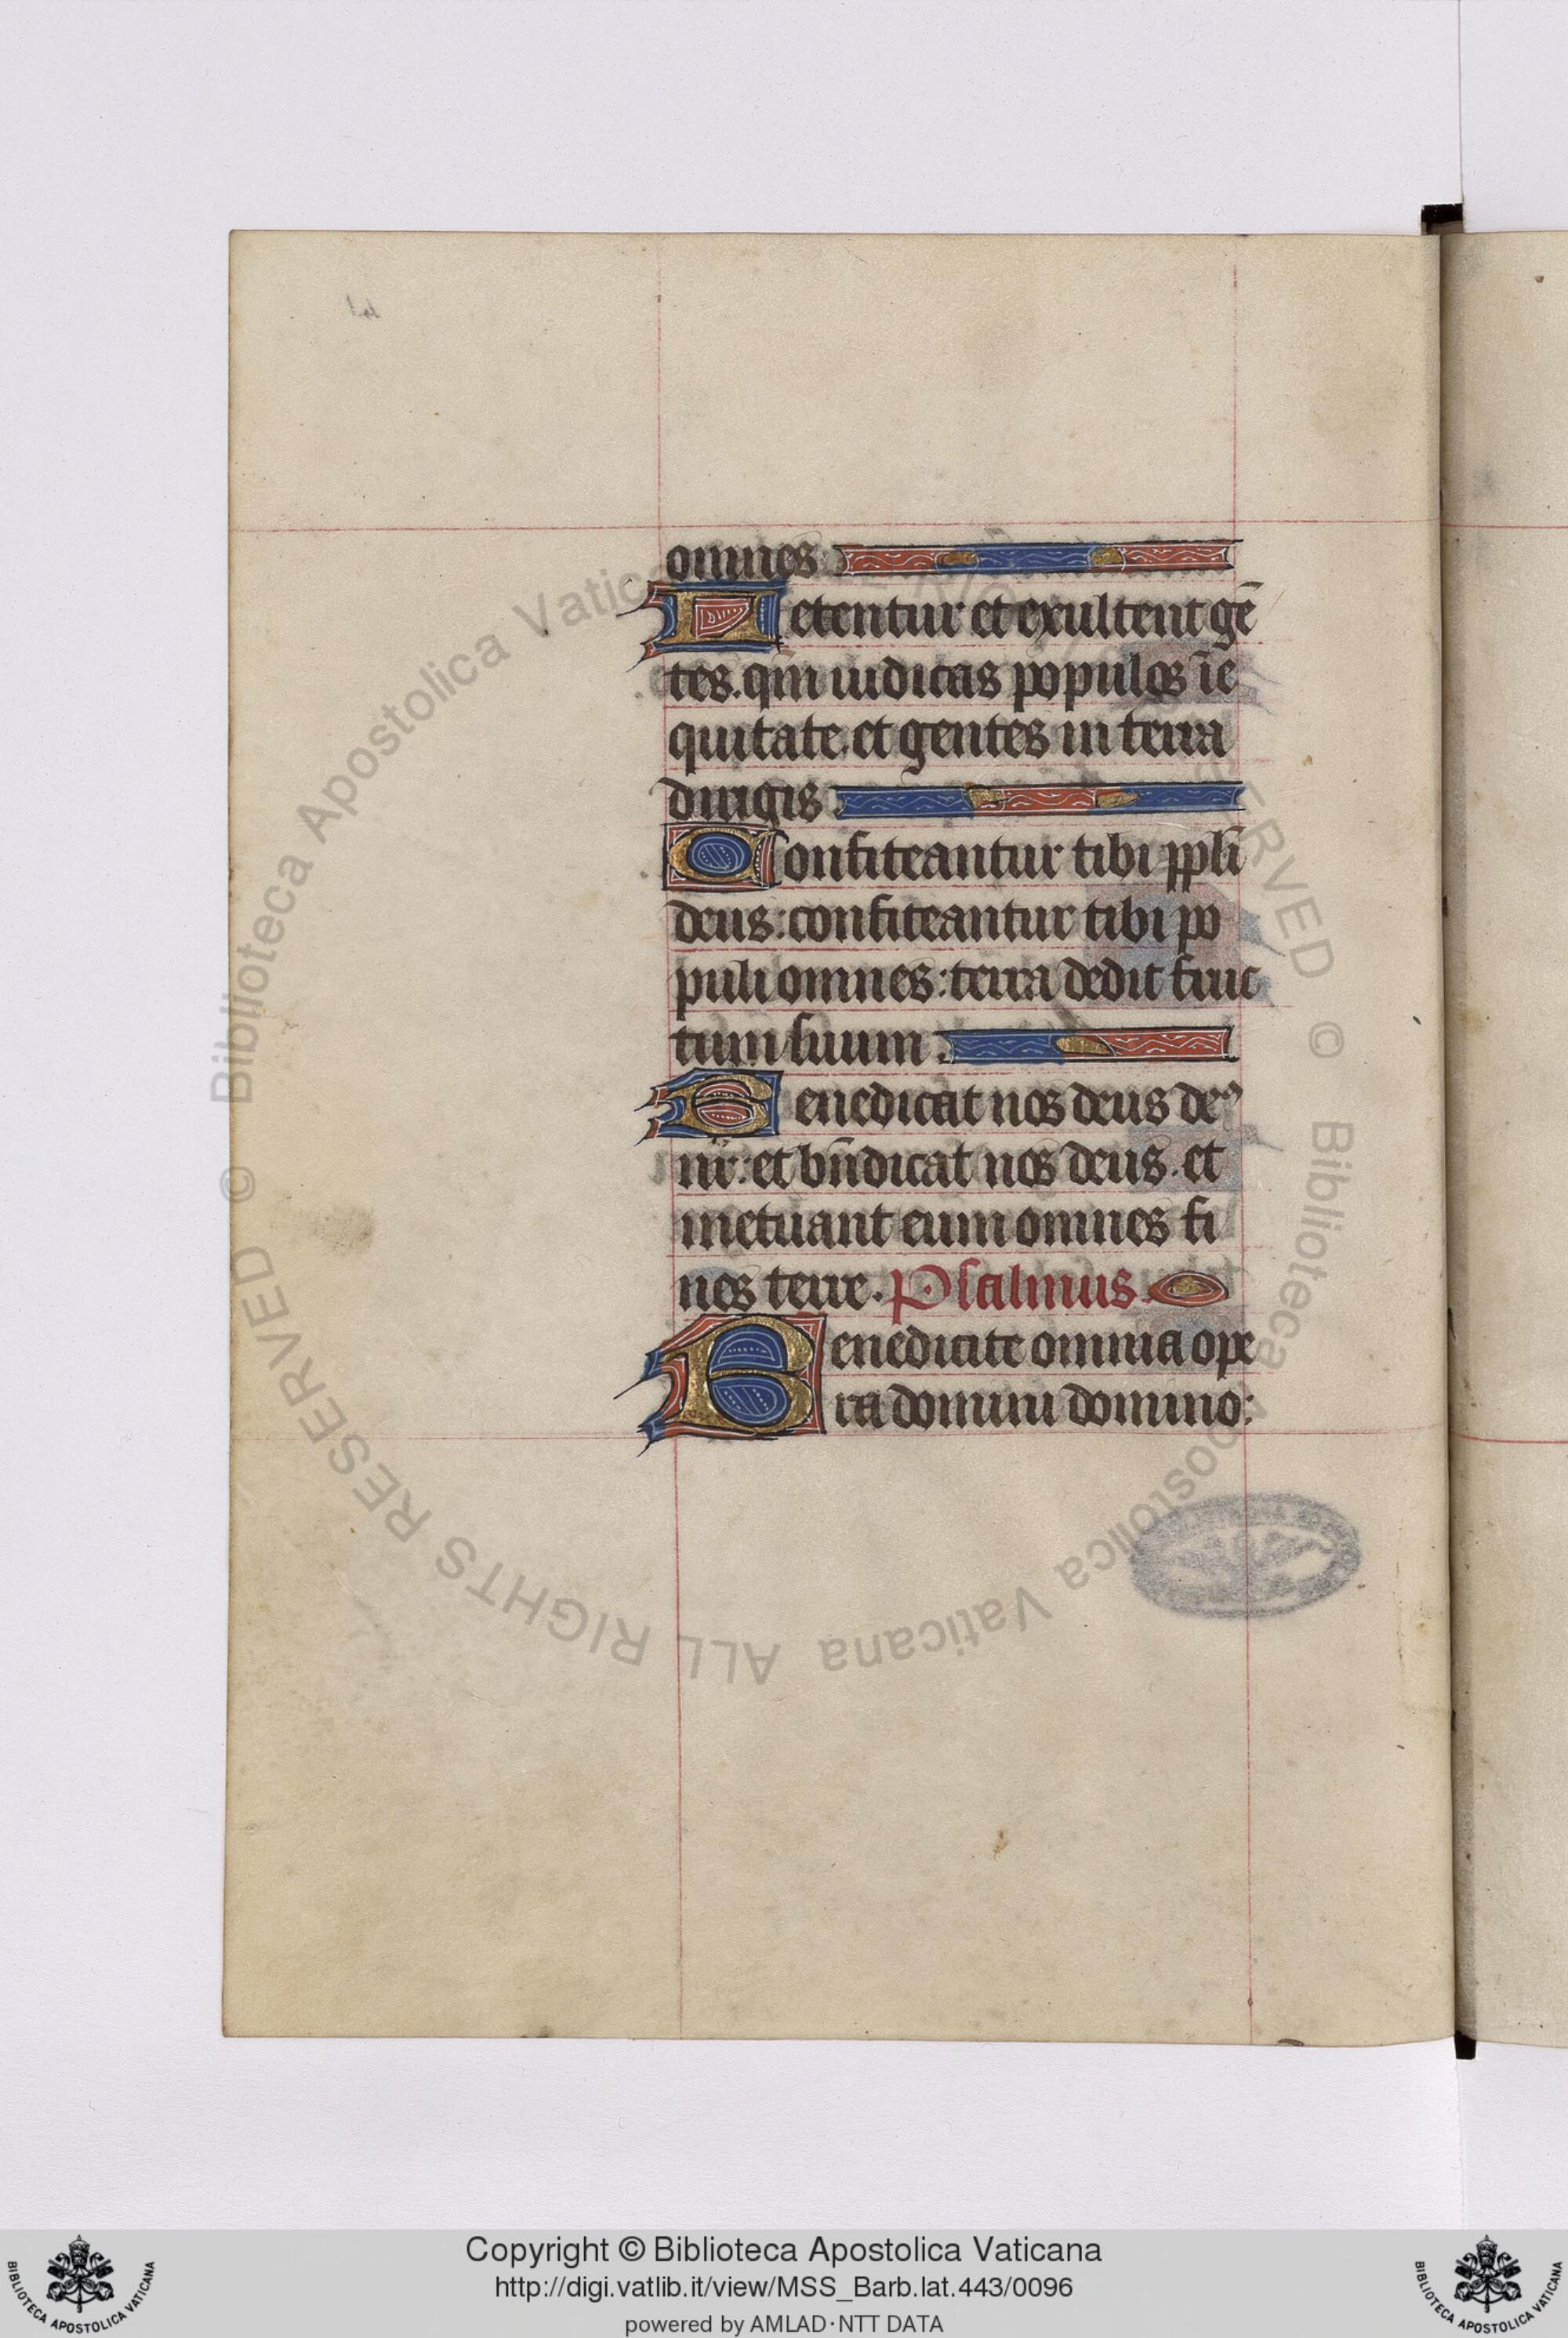 omnes.
Letentur et exultent gē
tes. qm̄ iudicas populos ī e
quitate. et gentes in terra
dirigis.
Confiteantur tibi pp̄li
deus: confiteantur tibi po
puli omnes: terra dedit fruc
tum suum.
Benedicat nos deus deꝰ
nr̄: et bn̄dicat nos deus. et
metuant eum omnes fi
nes terre. Psalmus.
Benedicite omnia ope
ra domini domino:
© Biblioteca Apostolica Vaticana ALL RIGHTS RESERVED
© Biblioteca Apostolica Vaticana ALL RIGHTS RESERVED
Copyright © Biblioteca Apostolica Vaticana
http://digi.vatlib.it/view/MSS_Barb.lat.443/0096
powered by AMLAD·NTT DATA
BIBLIOTECA APOSTOLICA VATICANA
BIBLIOTECA APOSTOLICA VATICANA